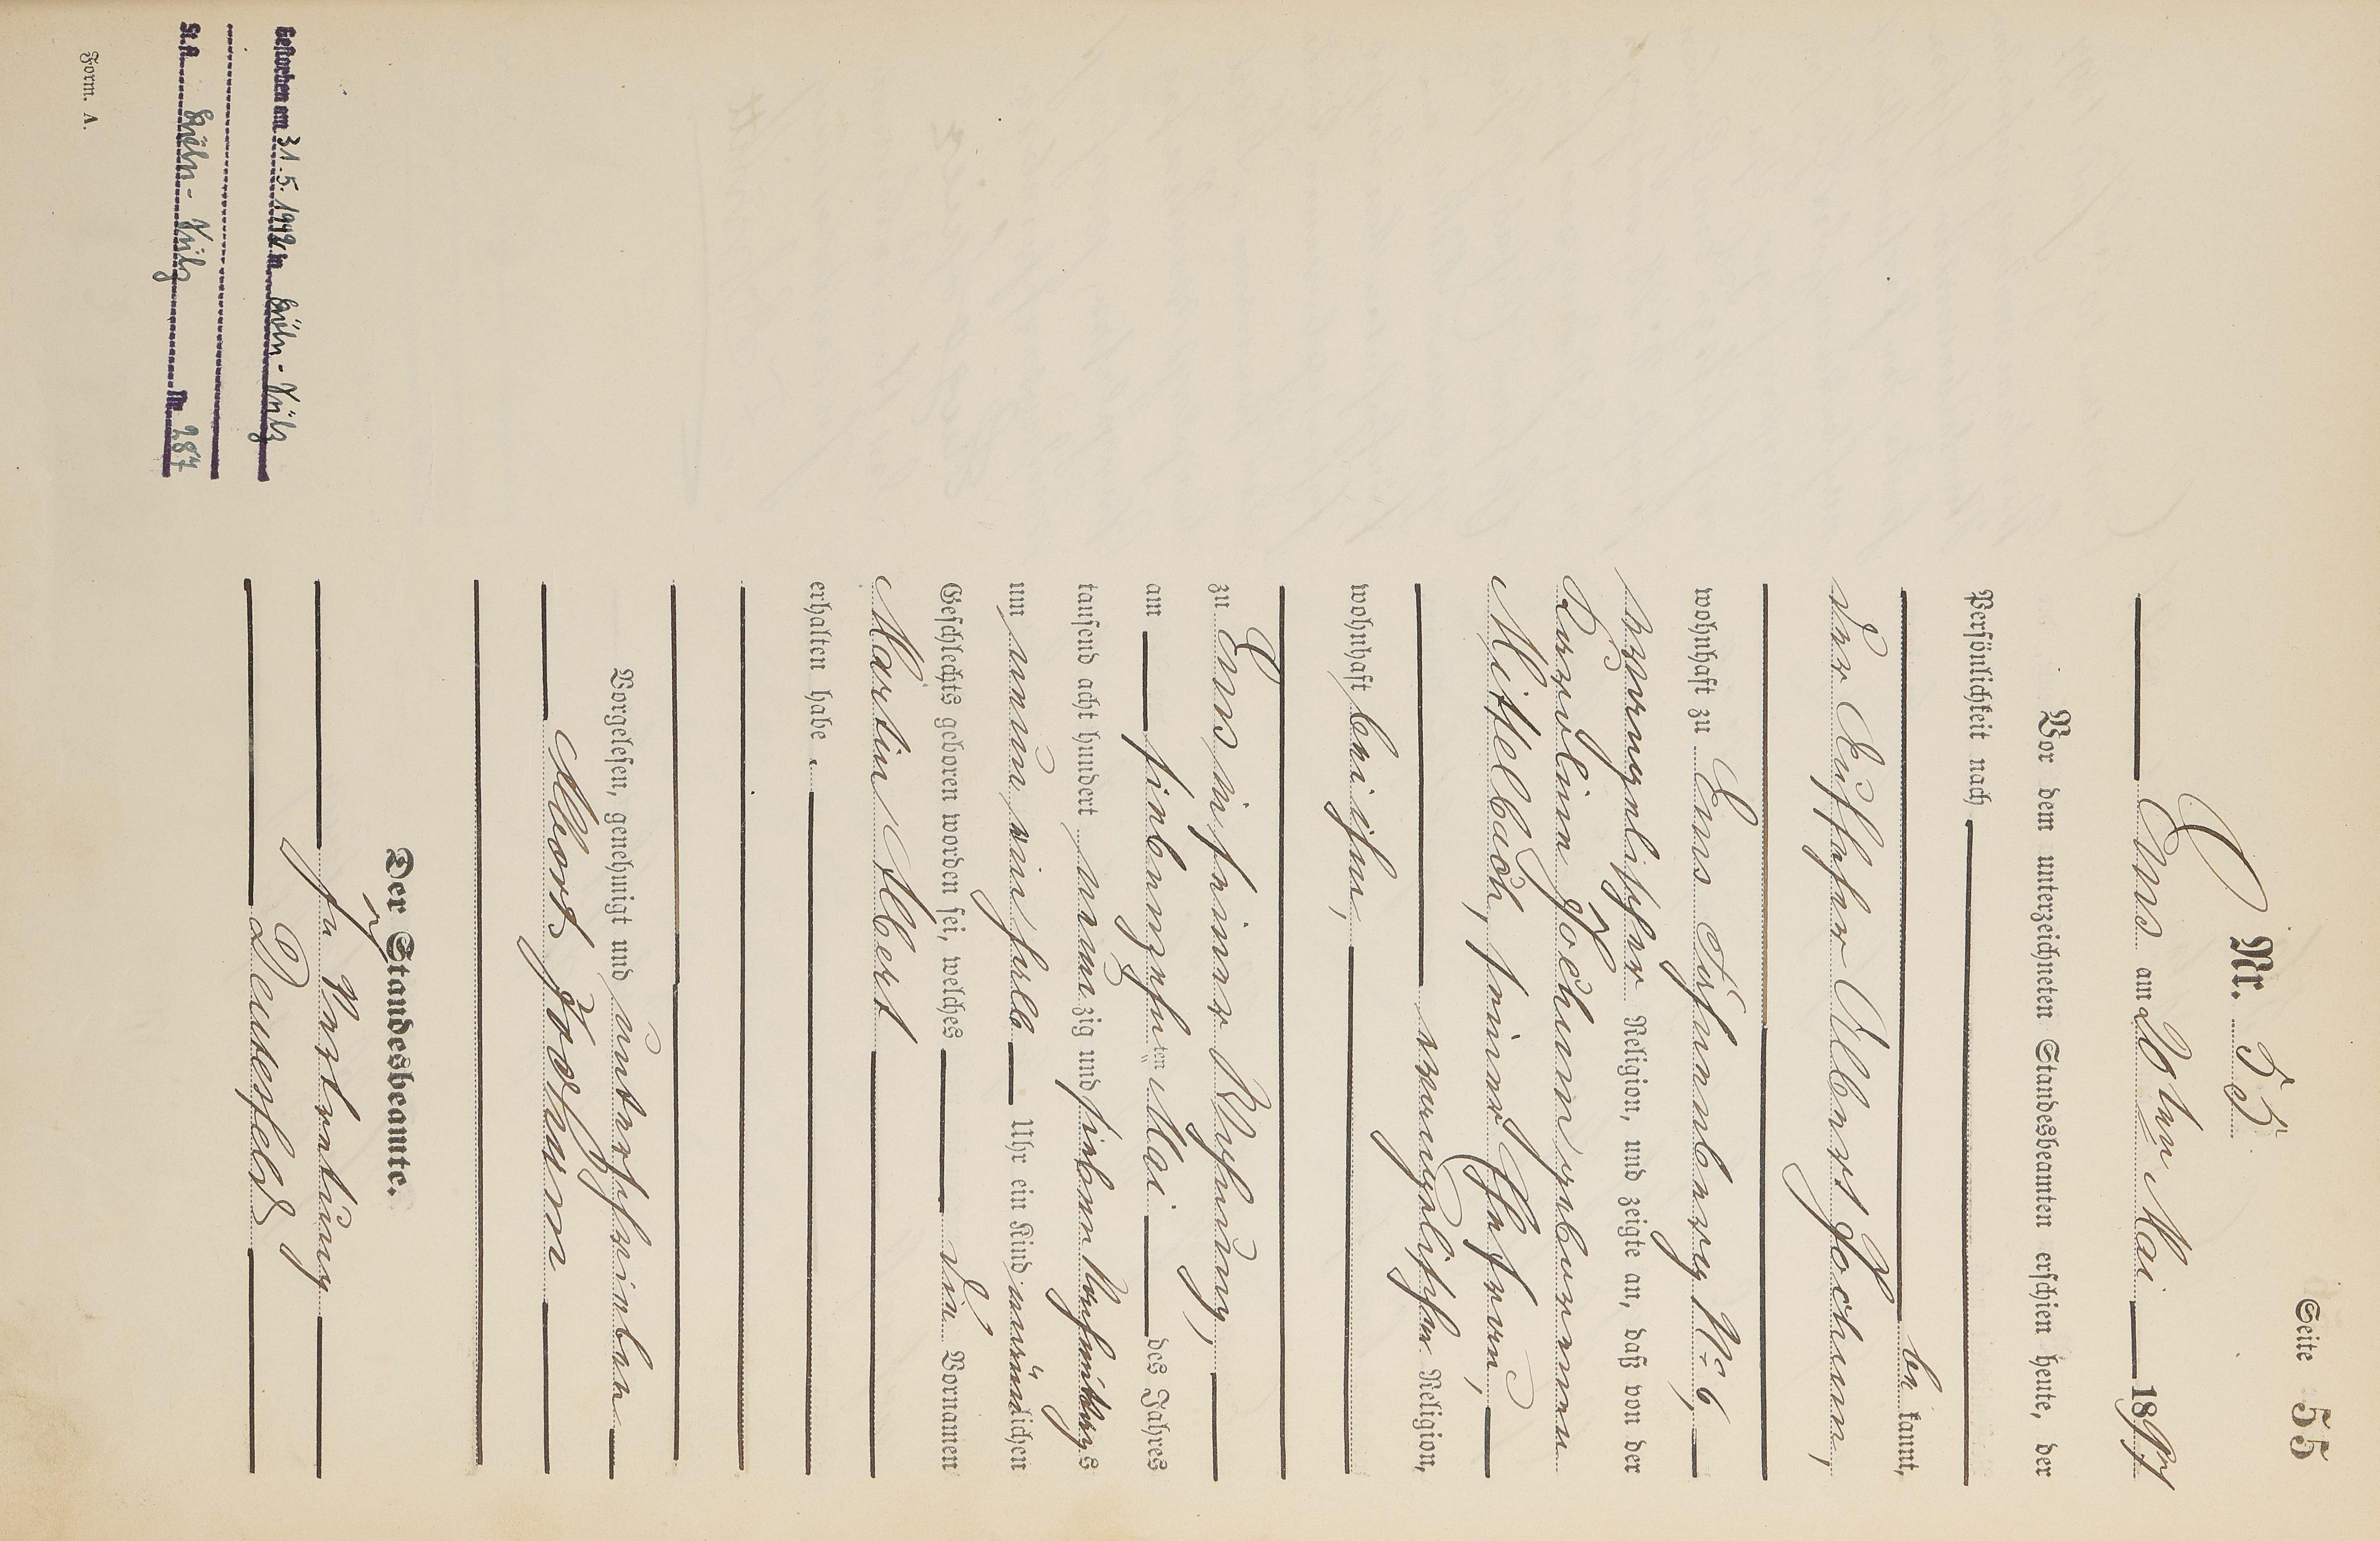 Seite 55
Nr. 55
Ems am 26 ten Mai 1897
Vor dem unterzeichneten Standesbeamten erschien heute, der
Persönlichkeit nach
be kannt,
der Albert Jochum,
wohnhaft zu Ems No 6,
evangelischer Religion, und zeigte an, daß von der
Karoline Jochum geborenen
Mittelbach, seiner Ehefrau,
evangelischer Religion,
wohnhaft bei ihm,
zu Ems in seiner Wohnung,
am siebenzehn ten Mai des Jahres
tausend acht hundert neun zig und sieben Vormittags
um neun ein halb Uhr ein Kind männlichen
Geschlechts geboren worden sei, welches die Vornamen
Martin Albert
erhalten habe.
Vorgelesen, genehmigt und unterschrieben
Albert Jochum
Der Standesbeamte.
In Vertretung
Deutesfeld
Gestorben am 31.5.1942 in Köln-Sülz
St. A. Köln-Sülz Nr. 287
Form. A.